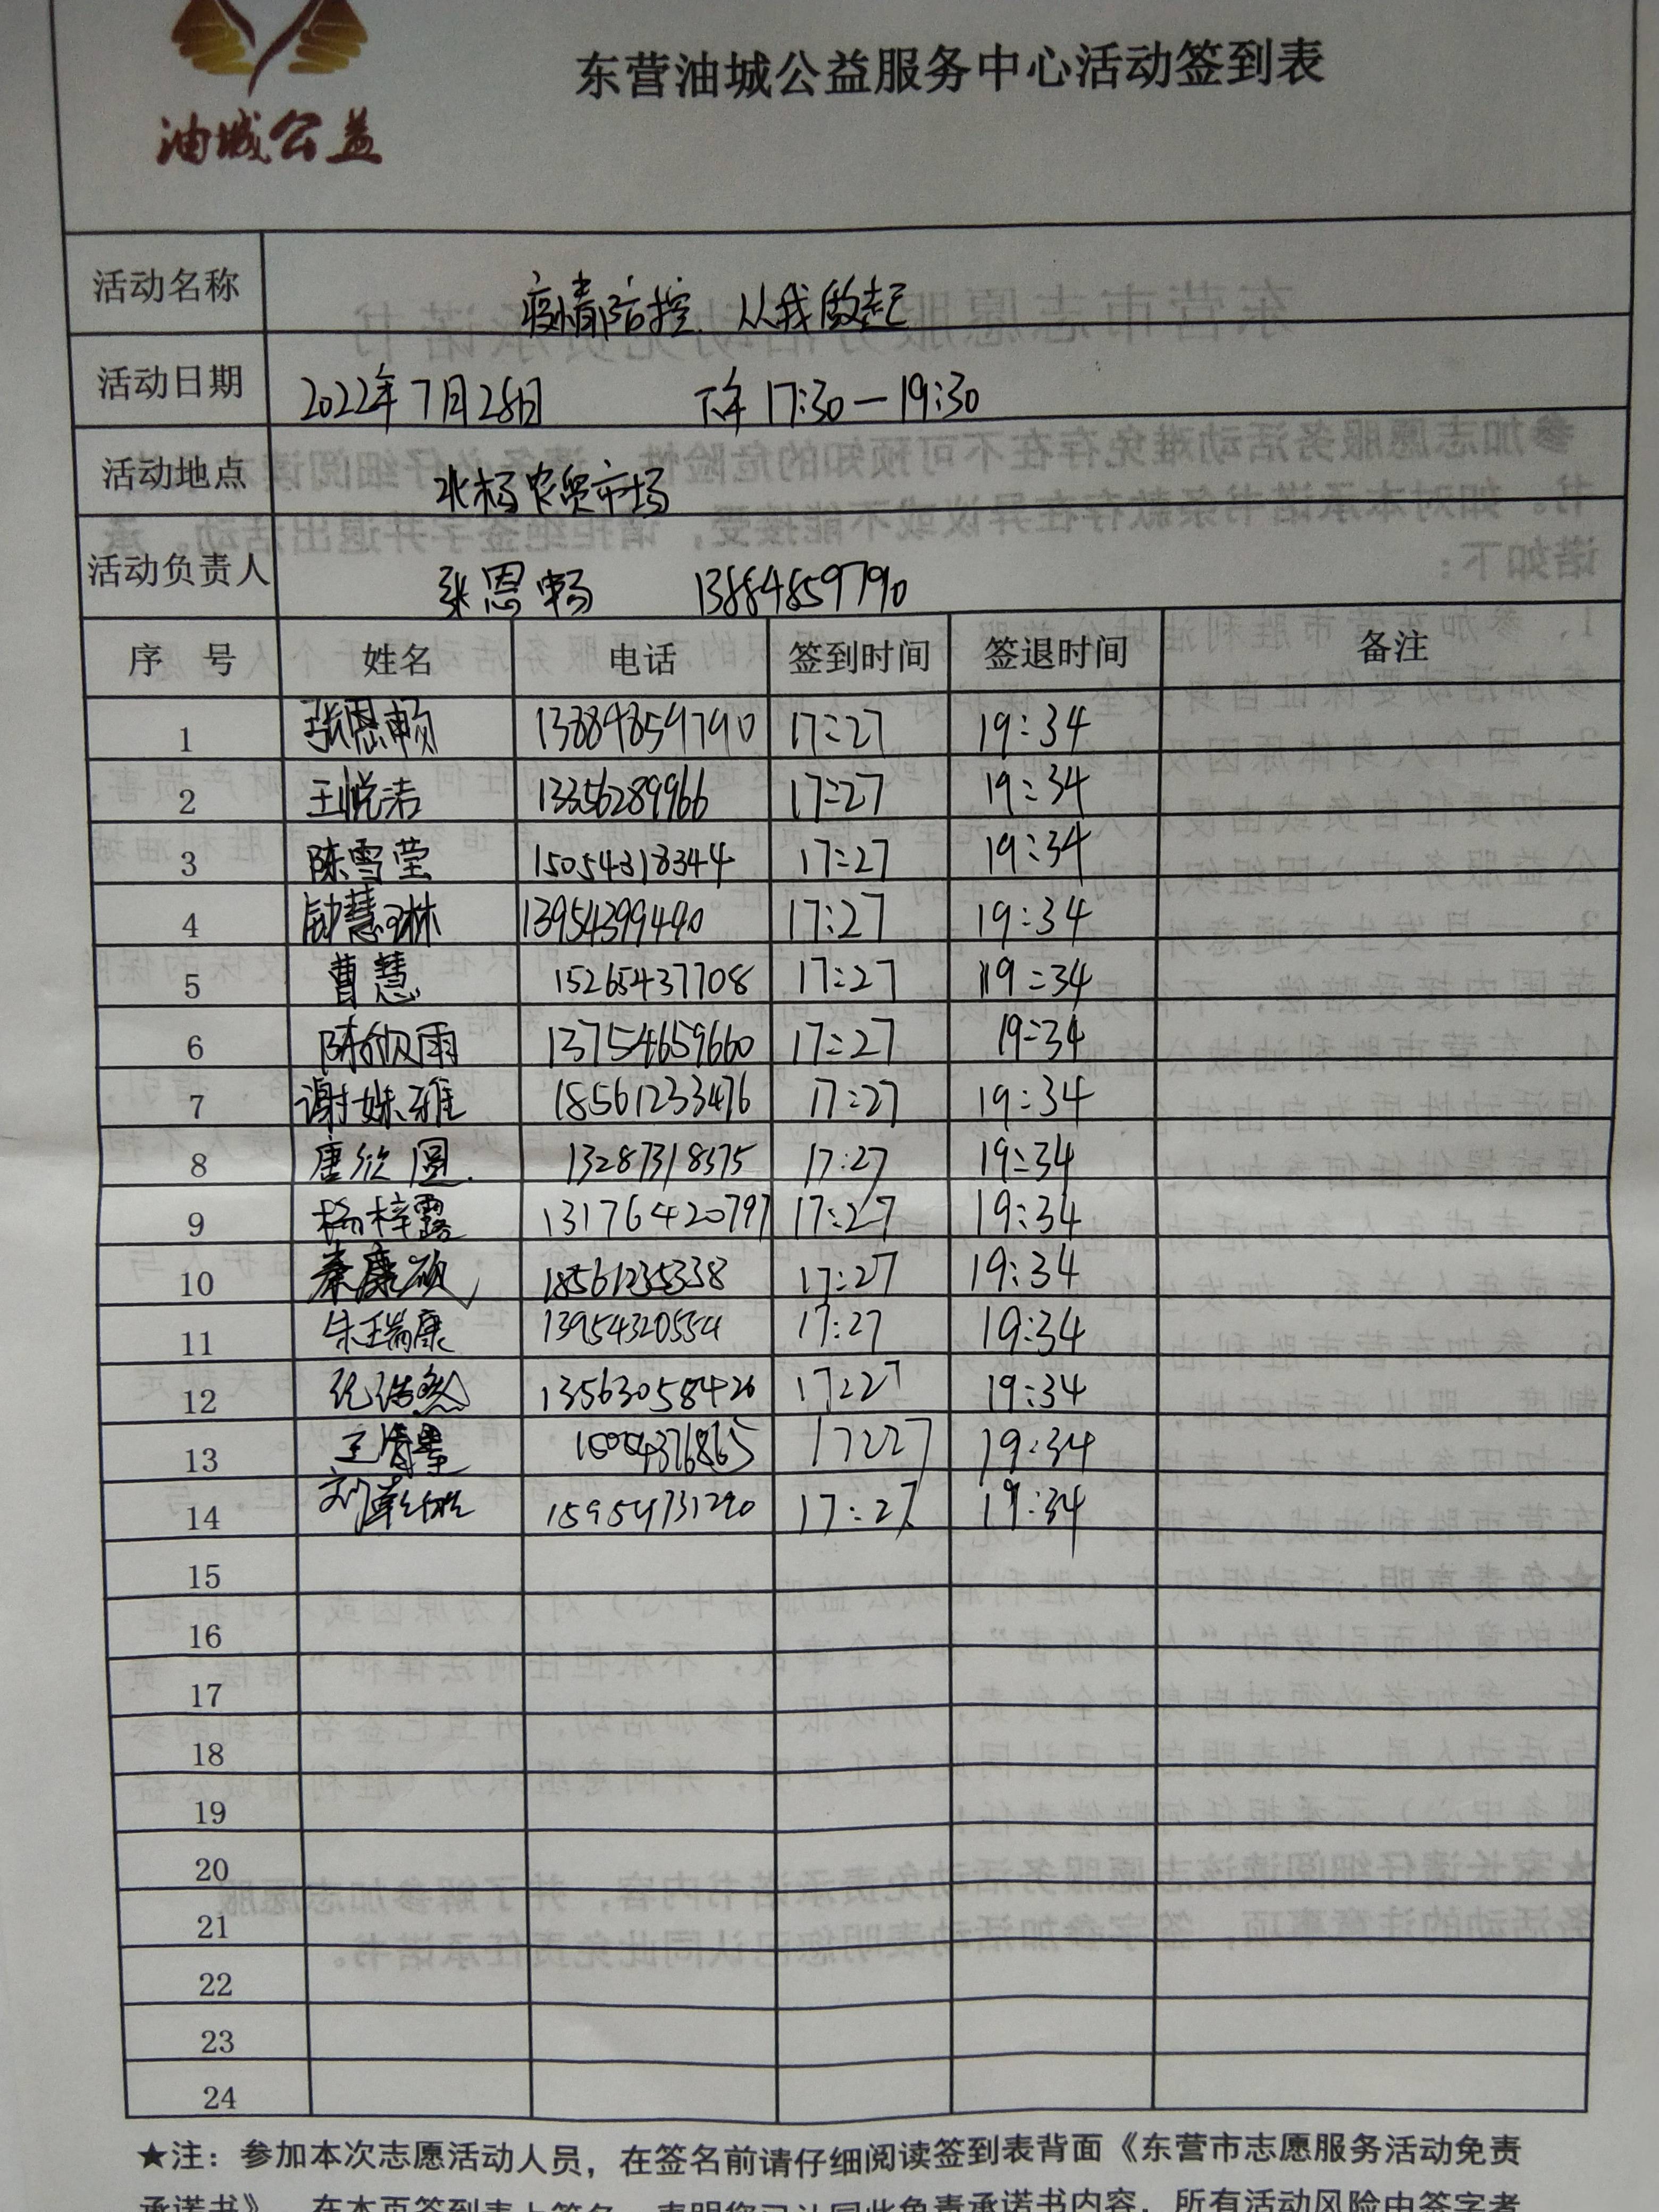 油城公益
东营油城公益服务中心活动签到表
活动名称 疫情防控 从我做起
活动日期 2022年7月28日 下午 17:30—19:30
活动地点 农贸市场
活动负责人 张恩畅 13884859790
序 号 姓名 电话 签到时间 签退时间 备注
1 张恩畅 13884859790 17:27 19:34
2 王悦洁 13356289966 17:27 19:34
3 陈雪莹 15054318344 17:27 19:34
4 慧琳 13954399490 17:27 19:34
5 曹慧 15265437708 17:27 19:34
6 陈欣雨 13754659660 17:27 19:34
7 谢姝雅 18561233476 17:27 19:34
8 唐欣圆 13287318575 17:27 19:34
9 杨梓露 13176420797 17:27 19:34
10 秦康硕 18561235338 17:27 19:34
11 朱瑞康 13954320554 17:27 19:34
12 纪浩然 13563058426 17:27 19:34
13 王 17:27 19:34
14 刘 15954731290 17:27 19:34
15
16
17
18
19
20
21
22
23
24
★注：参加本次志愿活动人员，在签名前请仔细阅读签到表背面《东营市志愿服务活动免责
承诺书》，在本页签到表上签名，表明您已认同此免责承诺书内容，所有活动风险由签字者